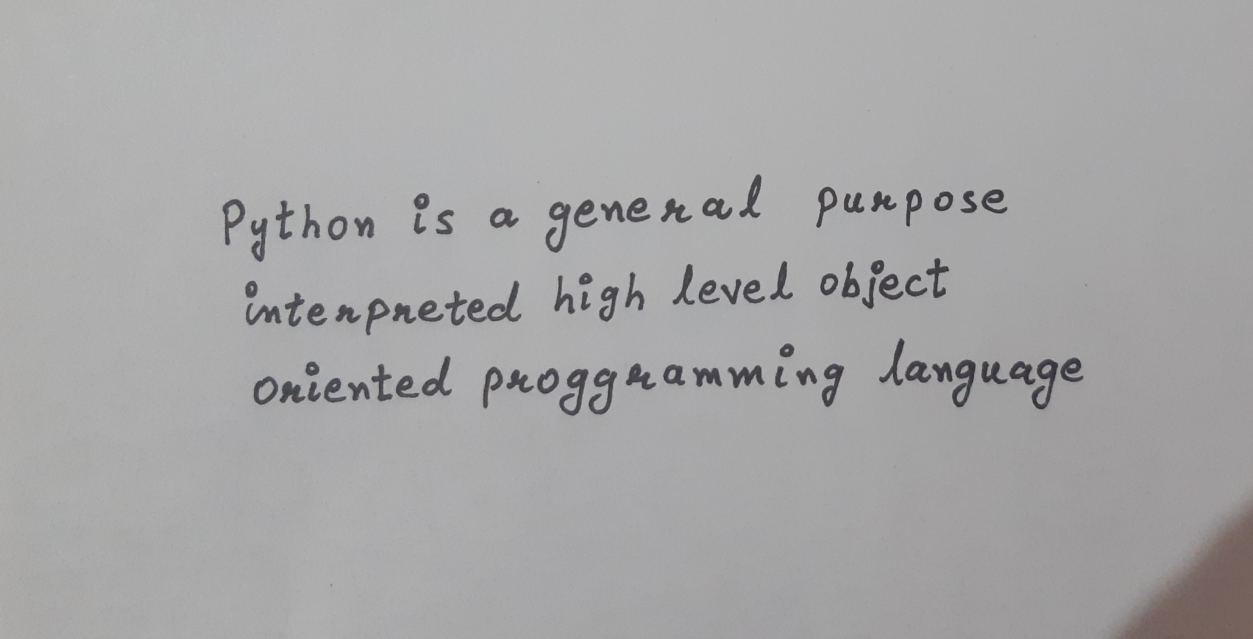 Python is a general purpose
interpreted high level object
oriented proggramming language